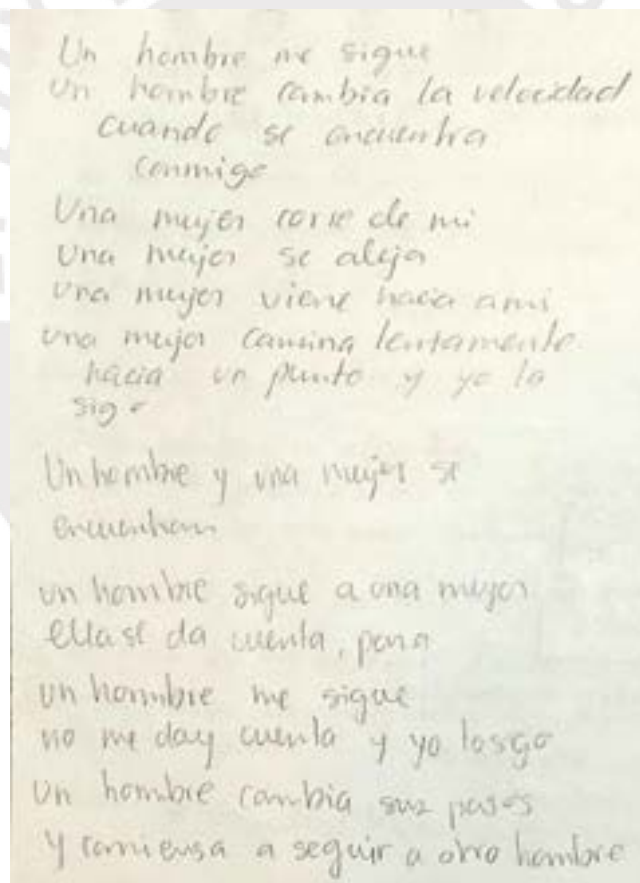 Un hombre me sigue
Un hombre cambia la velocidad
cuando se encuentra
conmigo
Una mujer corre de mi
una mujer se aleja
una mujer viene hacia a mi
una mujer camina lentamente
hacia un punto y yo la
sigo
Un hombre y una mujer se
encuentran
un hombre sigue a una mujer
ella se da cuenta, para
un hombre me sigue
no me doy cuenta y yo lo sigo
un hombre cambia sus pasos
y comiensa a seguir a otro hombre